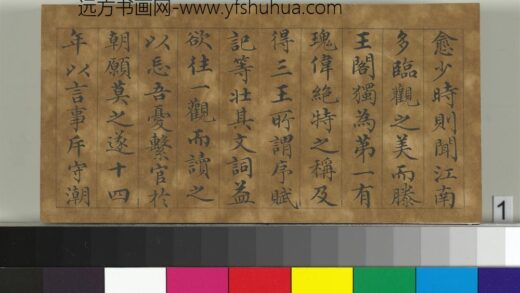 远方书画网-www.yfshuhua.com
愈少時則聞江南
多臨觀之美而滕
王閣獨為第一有
瑰偉絕特之稱及
得三王所謂序賦
記等壯其文詞益
欲往一觀而讀之
以忘吾憂繫官於
朝願莫之遂十四
年以言事斥守潮
1